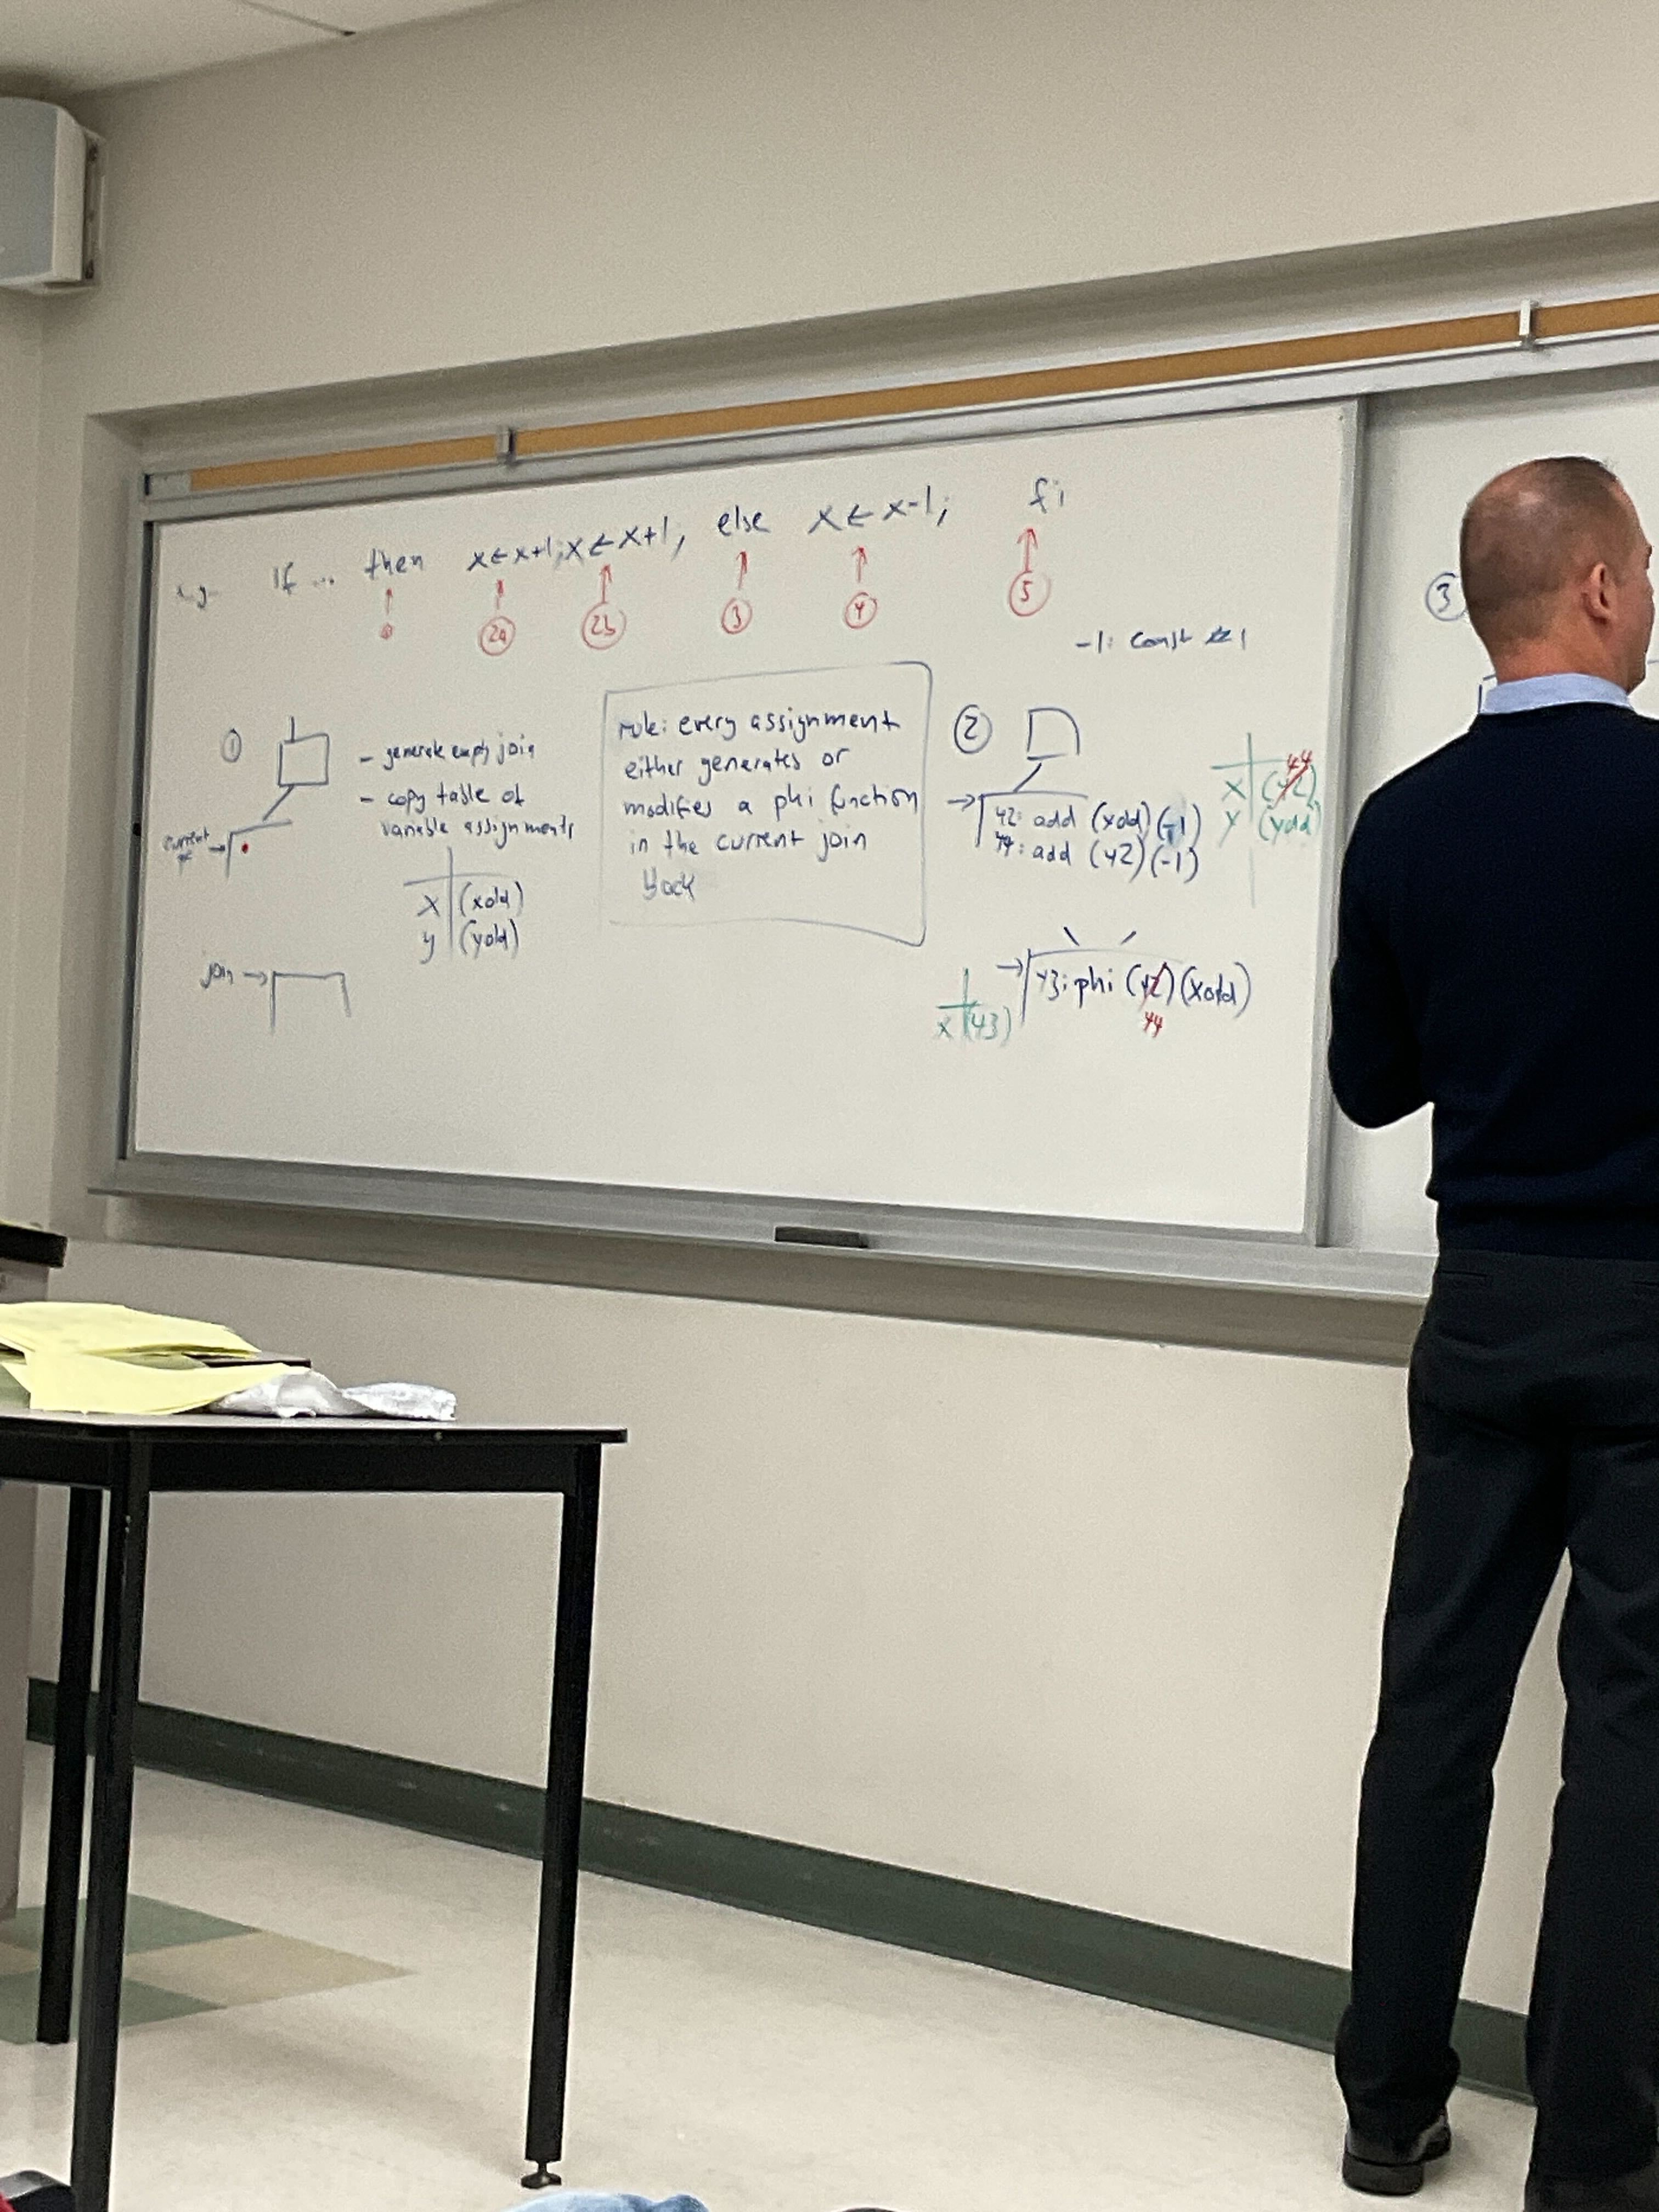 e.g. If ... then x←x+1; x←x+1; else x←x-1; fi
2a 2b 3 4 5
-1: const #1
1
- generate empty join
- copy table of
variable assignments
current
x (xold)
y (yold)
join →
rule: every assignment
either generates or
modifies a phi function
in the current join
block
2
42: add (xold)(-1)
44: add (42)(-1)
44
x (42)
y (yold)
43: phi (42)(xold)
44
x (43)
3